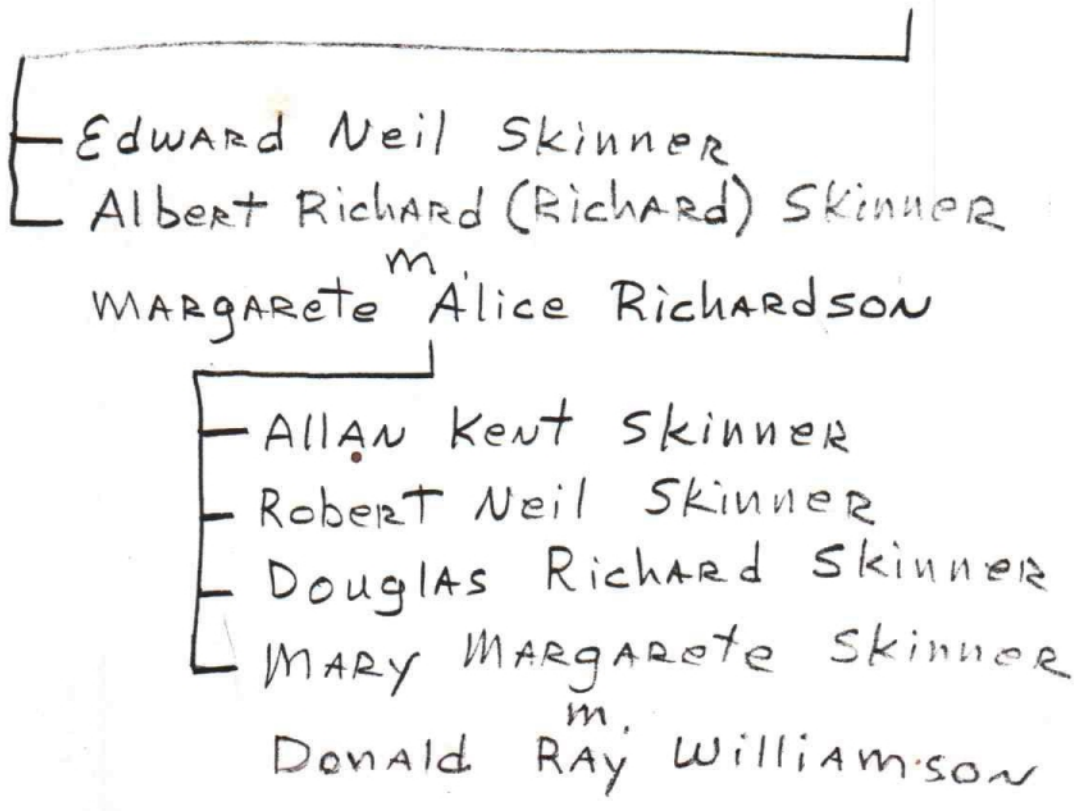 Edward Neil Skinner
Albert Richard (Richard) Skinner
m.
Margarete Alice Richardson
Allan Kent Skinner
Robert Neil Skinner
Douglas Richard Skinner
Mary Margarete Skinner
m.
Donald Ray Williamson